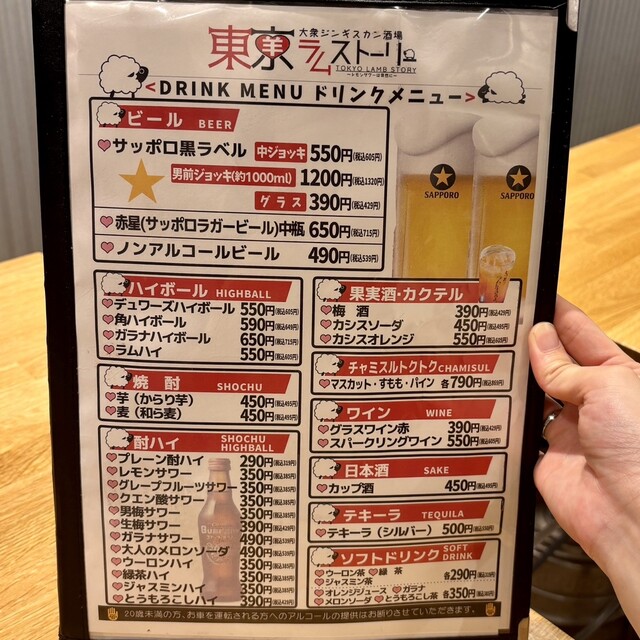 大衆ジンギスカン酒場
東京ラムストーリー
TOKYO LAMB STORY
<DRINK MENU ドリンクメニュー>
ビール BEER
サッポロ黒ラベル 中ジョッキ 550円(税込605円)
男前ジョッキ(約1000ml) 1200円(税込1320円)
グラス 390円(税込429円)
赤星(サッポロラガービール)中瓶 650円(税込715円)
ノンアルコールビール 490円(税込539円)
SAPPORO
SAPPORO
ハイボール HIGHBALL
デュワーズハイボール 550円(税込605円)
角ハイボール 590円(税込649円)
ガラナハイボール 650円(税込715円)
ラムハイ 550円(税込605円)
焼酎 SHOCHU
芋(からり芋) 450円(税込495円)
麦(和ら麦) 450円(税込495円)
酎ハイ SHOCHU HIGHBALL
プレーン酎ハイ 290円(税込319円)
レモンサワー 350円(税込385円)
グレープフルーツサワー 350円(税込385円)
クエン酸サワー 350円(税込385円)
男梅サワー 350円(税込385円)
生梅サワー 390円(税込429円)
ガラナサワー 490円(税込539円)
大人のメロンソーダ 490円(税込539円)
ウーロンハイ 350円(税込385円)
緑茶ハイ 350円(税込385円)
ジャスミンハイ 350円(税込385円)
とうもろこしハイ 390円(税込429円)
果実酒・カクテル
梅酒 390円(税込429円)
カシスソーダ 450円(税込495円)
カシスオレンジ 550円(税込605円)
チャミスルトクトク CHAMISUL
マスカット・すもも・パイン 各790円(税込869円)
ワイン WINE
グラスワイン赤 390円(税込429円)
スパークリングワイン 550円(税込605円)
日本酒 SAKE
カップ酒 450円(税込495円)
テキーラ TEQUILA
テキーラ(シルバー) 500円(税込550円)
ソフトドリンク SOFT DRINK
ウーロン茶 緑茶
ジャスミン茶 各290円(税込319円)
オレンジジュース ガラナ
メロンソーダ とうもろこし茶 各350円(税込385円)
20歳未満の方、お車を運転される方へのアルコールの提供はお断りさせていただきます。